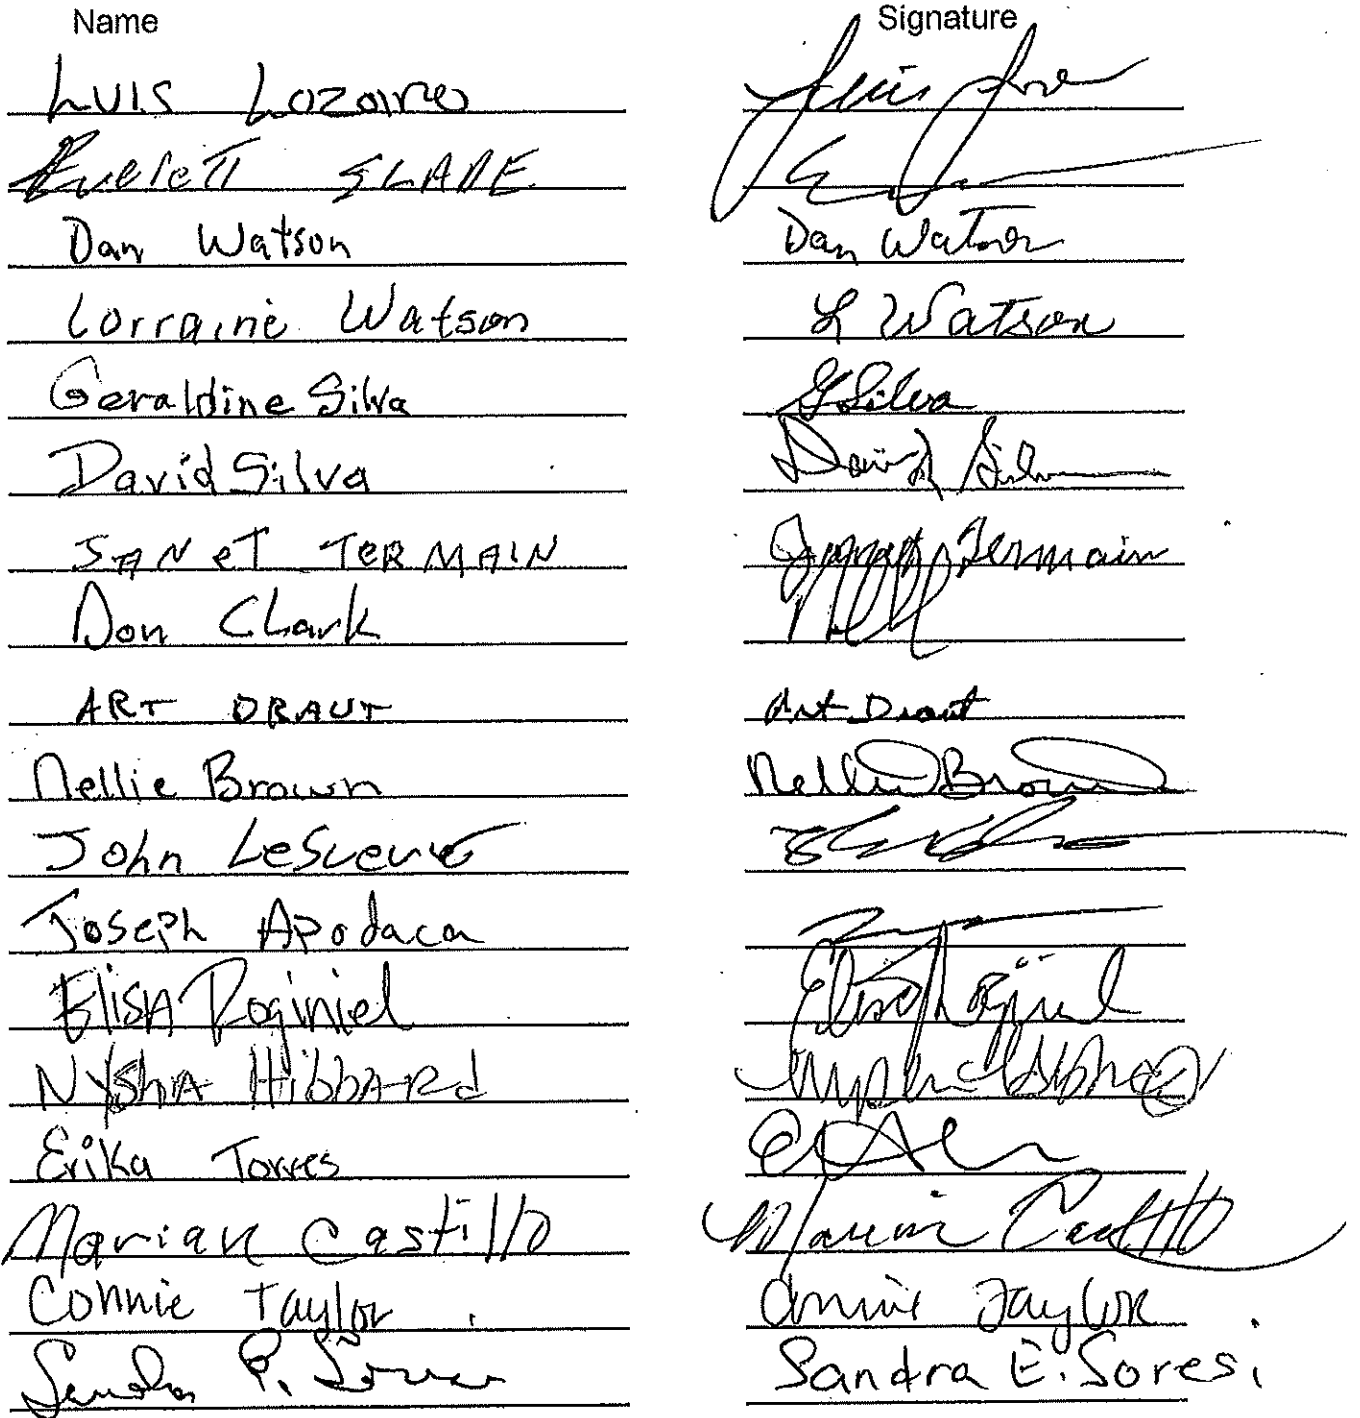 Name Signature
Luis Lozano
Everett SLADE
Dan Watson Dan Watson
Lorraine Watson L Watson
Geraldine Silva G Silva
David Silva David Silva
JANET TERMAIN Janet Termain
Don Clark
ART DRAUT Art Draut
Nellie Brown Nellie Brown
John LeSueur
Joseph Apodaca
Elisa Roginiel
Nysha Hibbard
Erika Torres
Marian Castillo Marian Castillo
Connie Taylor Connie Taylor
Sandra E. Soresi